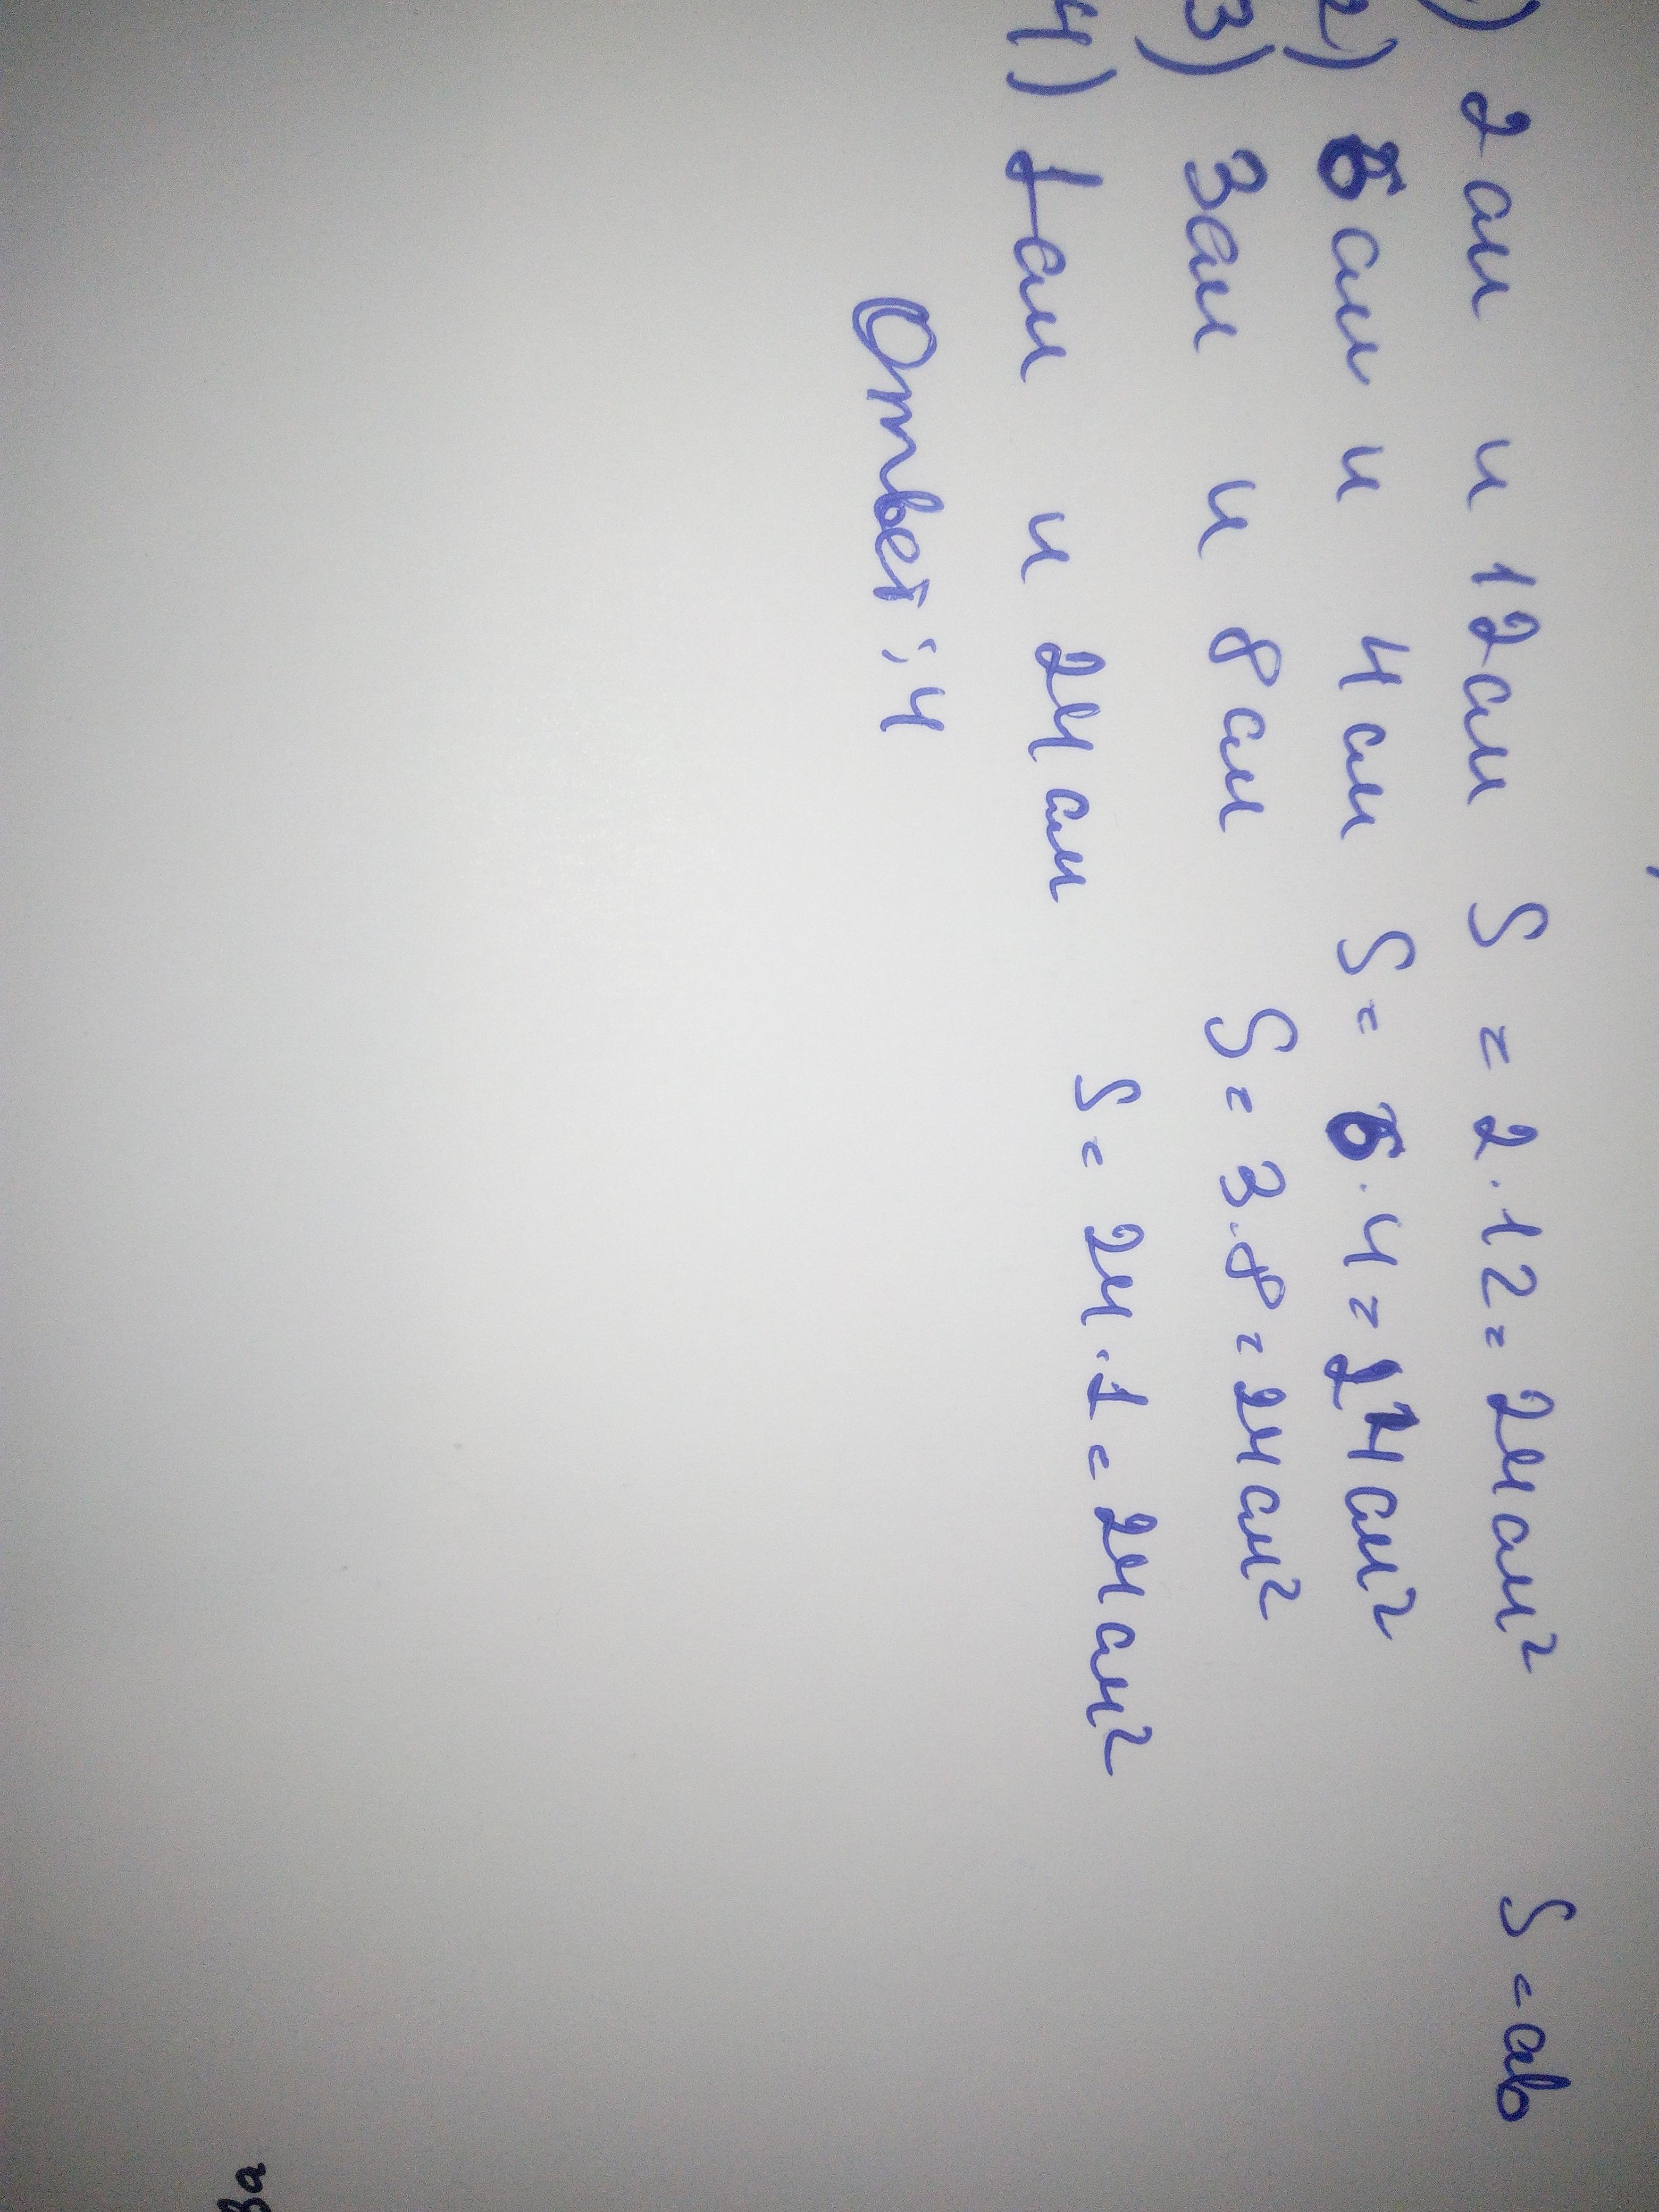 ) 2 см и 12 см S = 2 · 12 = 24 см² S = ab
2) 6 см и 4 см S = 6 · 4 = 24 см²
3) 3 см и 8 см S = 3 · 8 = 24 см²
4) 1 см и 24 см S = 24 · 1 = 24 см²
Ответ : 4
за